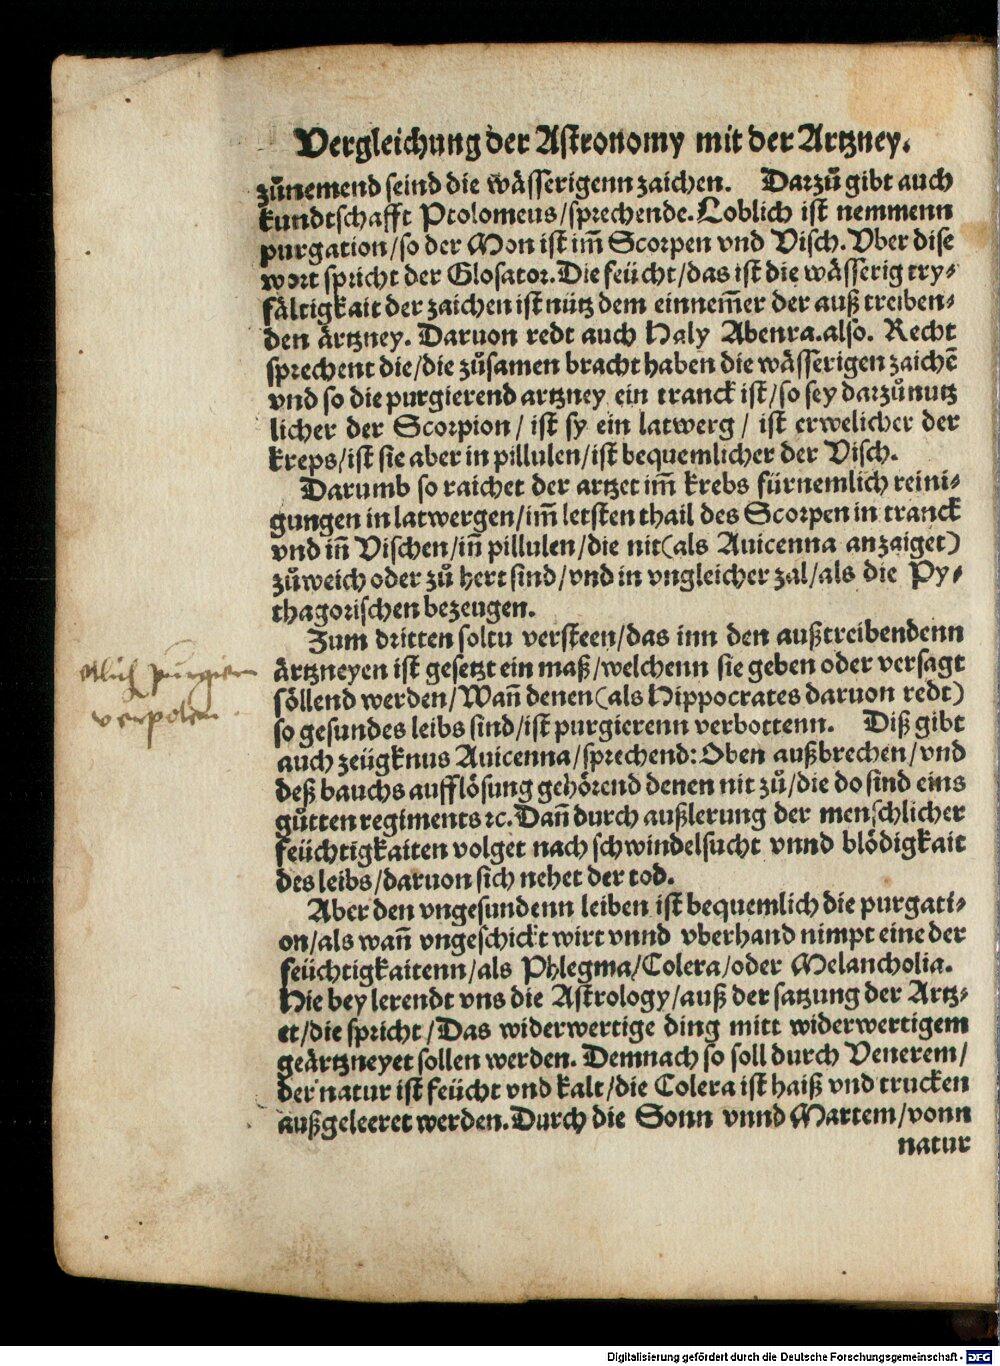 Vergleichung der Astronomy mit der Artzney.
zůnemend seind die wässerigenn zaichen. Darzů gibt auch
kundtschafft Ptolomeus/sprechende. Loblich ist nemmenn
purgation/so der Mon ist im̄ Scorpen vnd Visch. Vber dise
wort spricht der Glosator. Die feücht/das ist die wässerig try⸗
fältigkait der zaichen ist nütz dem einnem̄er der auß treiben⸗
den ärtzney. Daruon redt auch Haly Abenra.also. Recht
sprechent die/die zůsamen bracht haben die wässerigen zaichē
vnd so die purgierend artzney ein tranck ist/so sey darzů nutz
licher der Scorpion/ ist sy ein latwerg/ ist erwelicher der
kreps/ist sie aber in pillulen/ist bequemlicher der Visch.
Darumb so raichet der artzet im̄ krebs fürnemlich reini⸗
gungen in latwergen/im̄ letsten thail des Scorpen in tranck
vnd in̄ Vischen/in̄ pillulen/die nit(als Auicenna anzaiget)
zů weich oder zů hert sind/vnd in vngleicher zal/als die Py⸗
thagorischen bezeugen.
Zum dritten soltu versteen/das inn den außtreibendenn
ärtzneyen ist gesetzt ein maß/welchenn sie geben oder versagt
söllend werden/Wan̄ denen(als Hippocrates daruon redt)
so gesundes leibs sind/ist purgierenn verbottenn. Diß gibt
auch zeügknus Auicenna/sprechend: Oben außbrechen/vnd
deß bauchs aufflösung gehörend denen nit zů/die do sind eins
gůtten regiments ꝛc. Dan̄ durch außlerung der menschlicher
feüchtigkaiten volget nach schwindelsucht vnnd blödigkait
des leibs/daruon sich nehet der tod.
Aber den vngesundenn leiben ist bequemlich die purgati⸗
on/als wan̄ vngeschickt wirt vnnd vberhand nimpt eine der
feüchtigkaitenn/als Phlegma/Colera/oder Melancholia.
Hie bey lerendt vns die Astrology/auß der satzung der Artz⸗
et/die spricht/Das widerwertige ding mitt widerwertigem
geärtzneyet sollen werden. Demnach so soll durch Venerem/
der natur ist feücht vnd kalt/die Colera ist haiß vnd trucken
außgeleeret werden. Durch die Sonn vnnd Martem/vonn
natur
etlich purgiern
verpoten
Digitalisierung gefördert durch die Deutsche Forschungsgemeinschaft - DFG